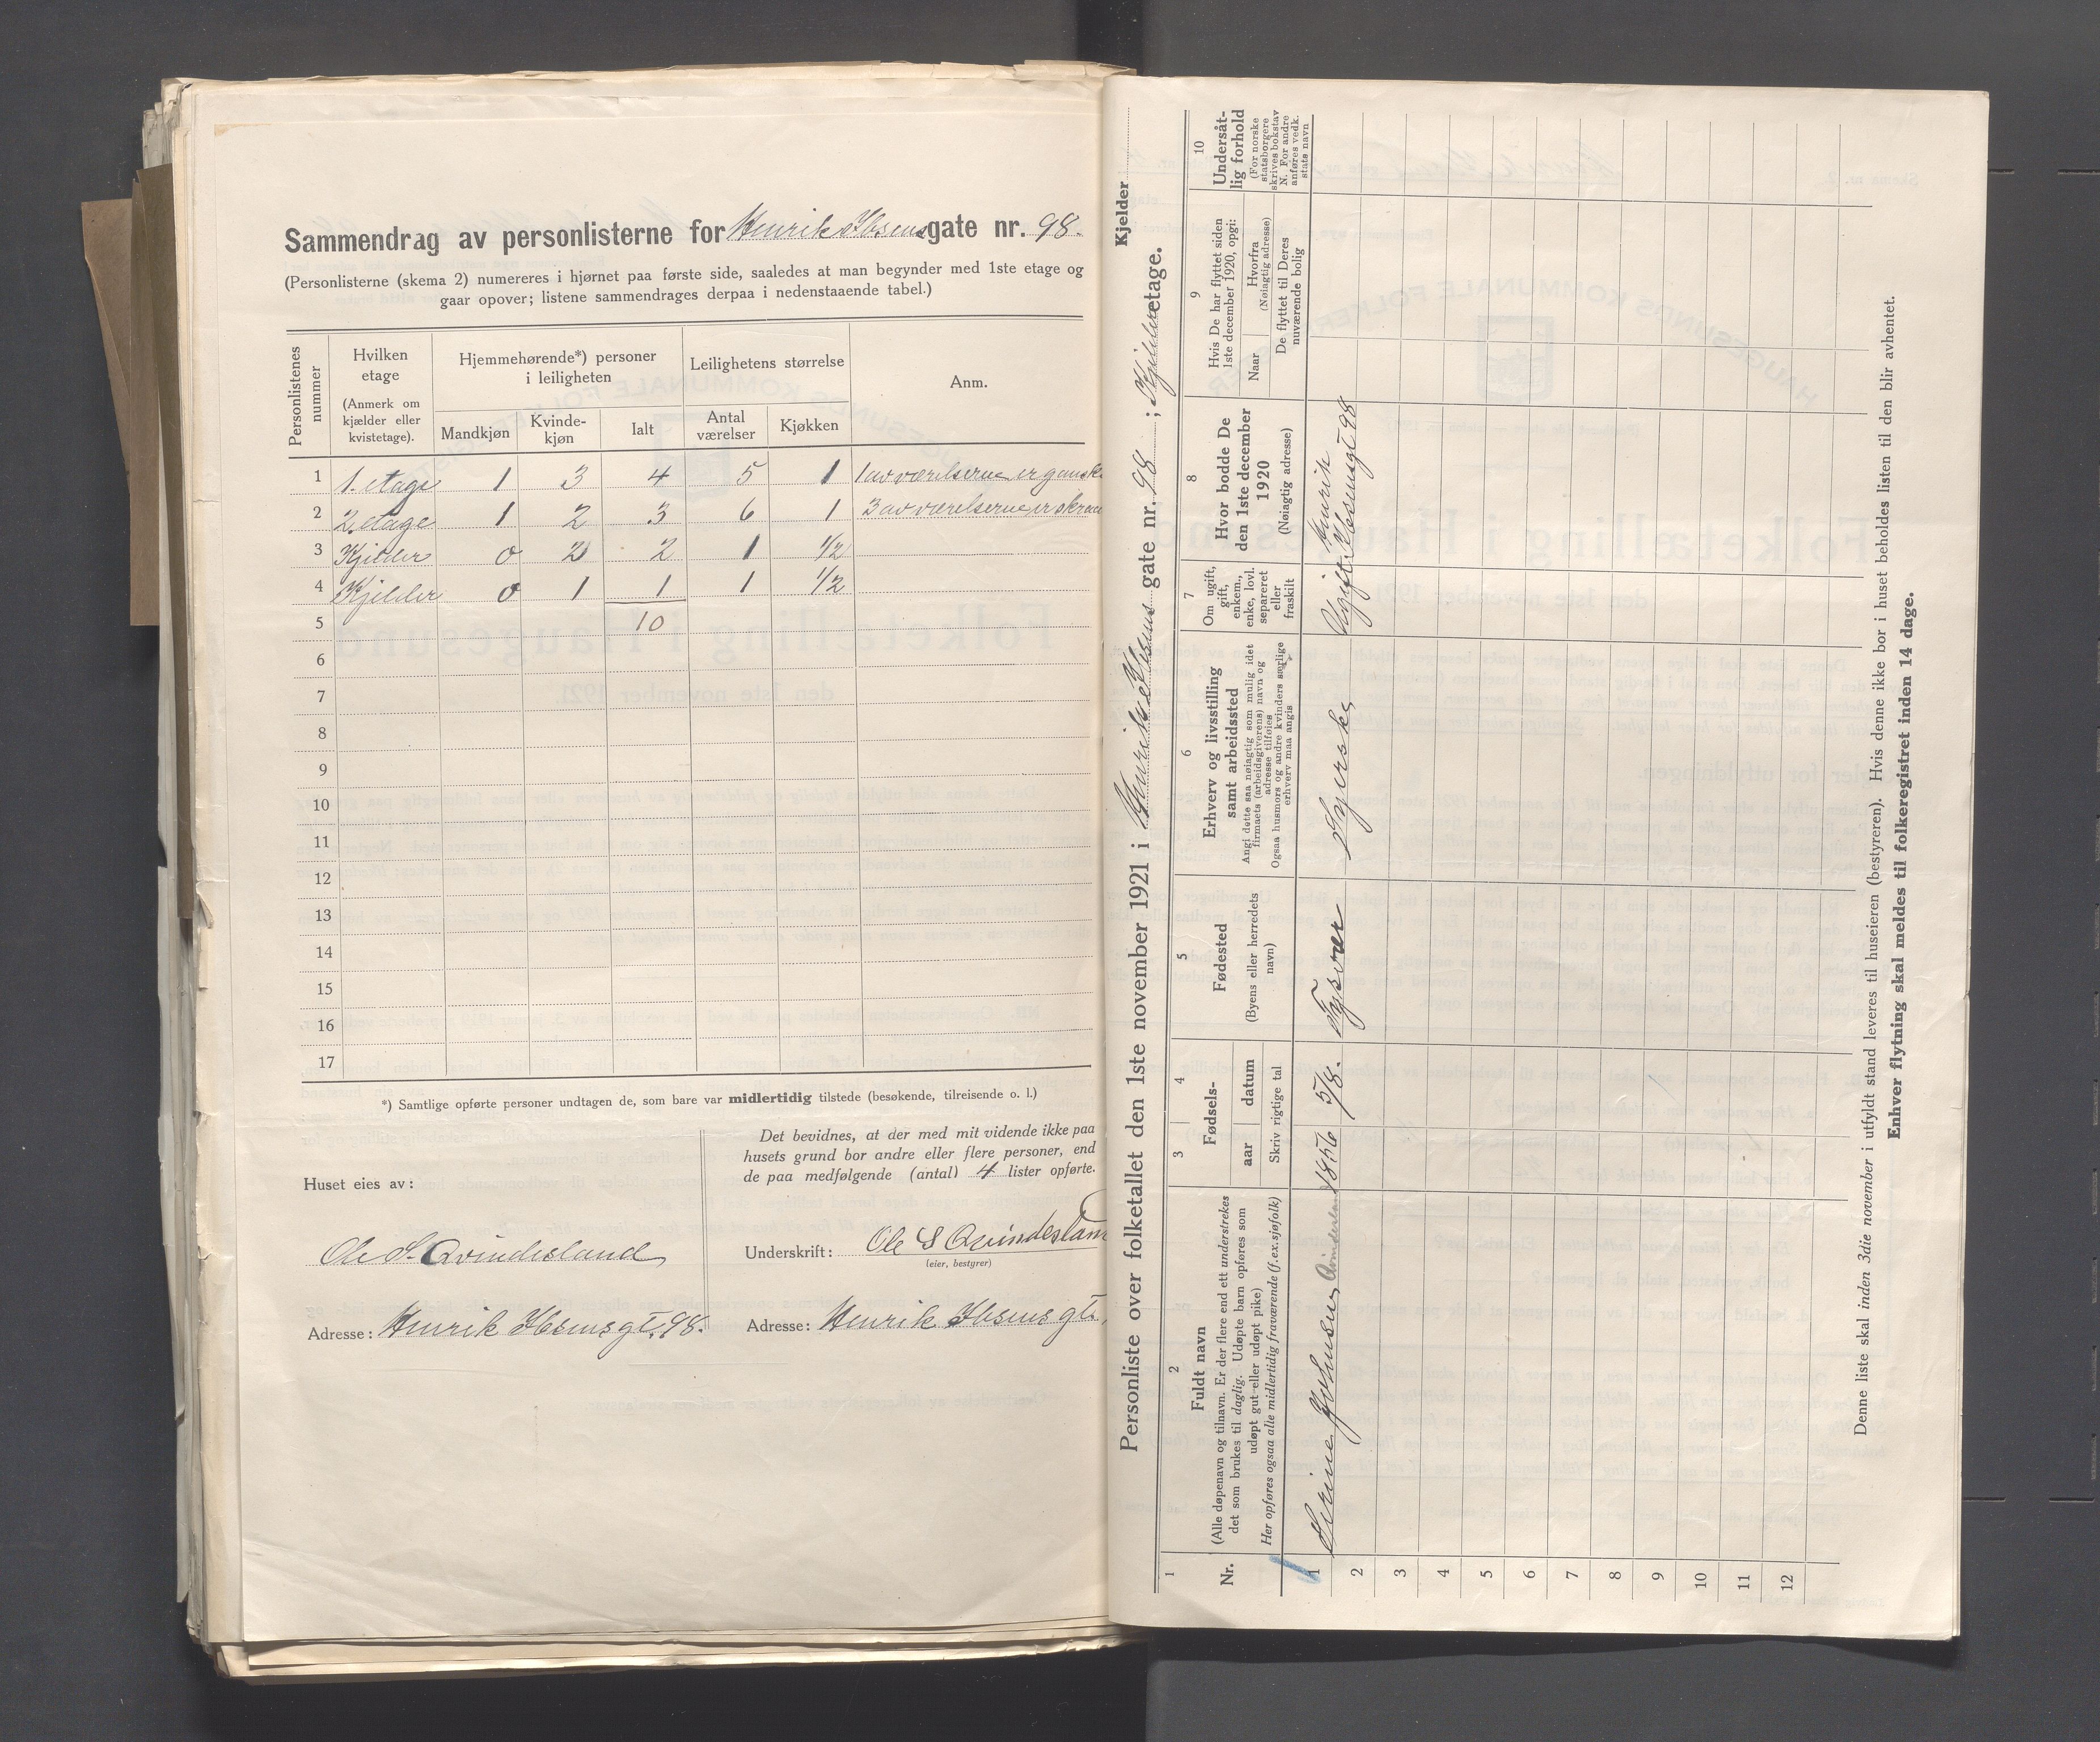 Sammendrag av personlisterne for Henrik Ibsens gate nr. 98.
(Personlisterne (skema 2) numereres i hjørnet paa første side, saaledes at man begynder med 1ste etage og
gaar opover; listene sammendrages derpaa i nedenstaaende tabel.)
Personlistenes nummer
Hvilken etage (Anmerk om kjælder eller kvistetage).
Hjemmehørende*) personer i leiligheten
Leilighetens størrelse
Anm.
Mandkjøn Kvindekjøn Ialt Antal værelser Kjøkken
1 1. etage 1 3 4 5 1 1 av værelserne er ganske
2 2. etage 1 2 3 6 1 3 av værelserne er
3 Kjelder 0 2 2 1 1/2
4 Kjelder 0 1 1 1 1/2
5 10
6
7
8
9
10
11
12
13
14
15
16
17
*) Samtlige opførte personer undtagen de, som bare var midlertidig tilstede (besøkende, tilreisende o. l.)
Huset eies av:
Ole S. Qvindesland
Adresse: Henrik Ibsensgt. 98.
Det bevidnes, at der med mit vidende ikke paa
husets grund bor andre eller flere personer, end
de paa medfølgende (antal) 4 lister opførte.
Underskrift: Ole S Qvindesland
(eier, bestyrer)
Adresse: Henrik Ibsens gt.
Kjelder
Personliste over folketallet den 1ste november 1921 i Henrik Ibsens gate nr. 98 ; Kjelder etage.
1
Nr.
2
Fuldt navn
(Alle døpenavn og tilnavn. Er der flere end ett understrekes
det som brukes til daglig. Udøpte barn opføres som
udøpt gut eller udøpt pike)
Her opføres ogsaa alle midlertidig fraværende (f. ex. sjøfolk)
3 4
Fødsels-
aar datum
Skriv rigtige tal
5
Fødested
(Byens eller herredets
navn)
6
Erhverv og livsstilling
samt arbeidssted
Angi dette saa nøiagtig som mulig idet
firmaets (arbeidsgiverens) navn og
adresse tilføies
Ogsaa husmors og andre kvinders særlige
erhverv maa angis
7
Om ugift,
gift,
enkem.,
enke, lovl.
separeret
eller
fraskilt
8
Hvor bodde De
den 1ste december
1920
(Nøiagtig adresse)
9
Hvis De har flyttet siden
1ste december 1920, opgi:
Naar
Hvorfra
(Nøiagtig adresse)
De flyttet til Deres
nuværende bolig
10
Undersåt-
lig forhold
(For norske
statsborgere
skrives bokstav
N. For andre
anføres vedk.
stats navn
1 Serine Johnsen Qvindesland 1856 5/8. Tysvær Syerske Ugift Henrik Ibsensgt 98
2
3
4
5
6
7
8
9
10
11
12
Denne liste skal inden 3die november i utfyldt stand leveres til huseieren (bestyreren). Hvis denne ikke bor i huset beholdes listen til den blir avhentet.
Enhver flytning skal meldes til folkeregistret inden 14 dage.